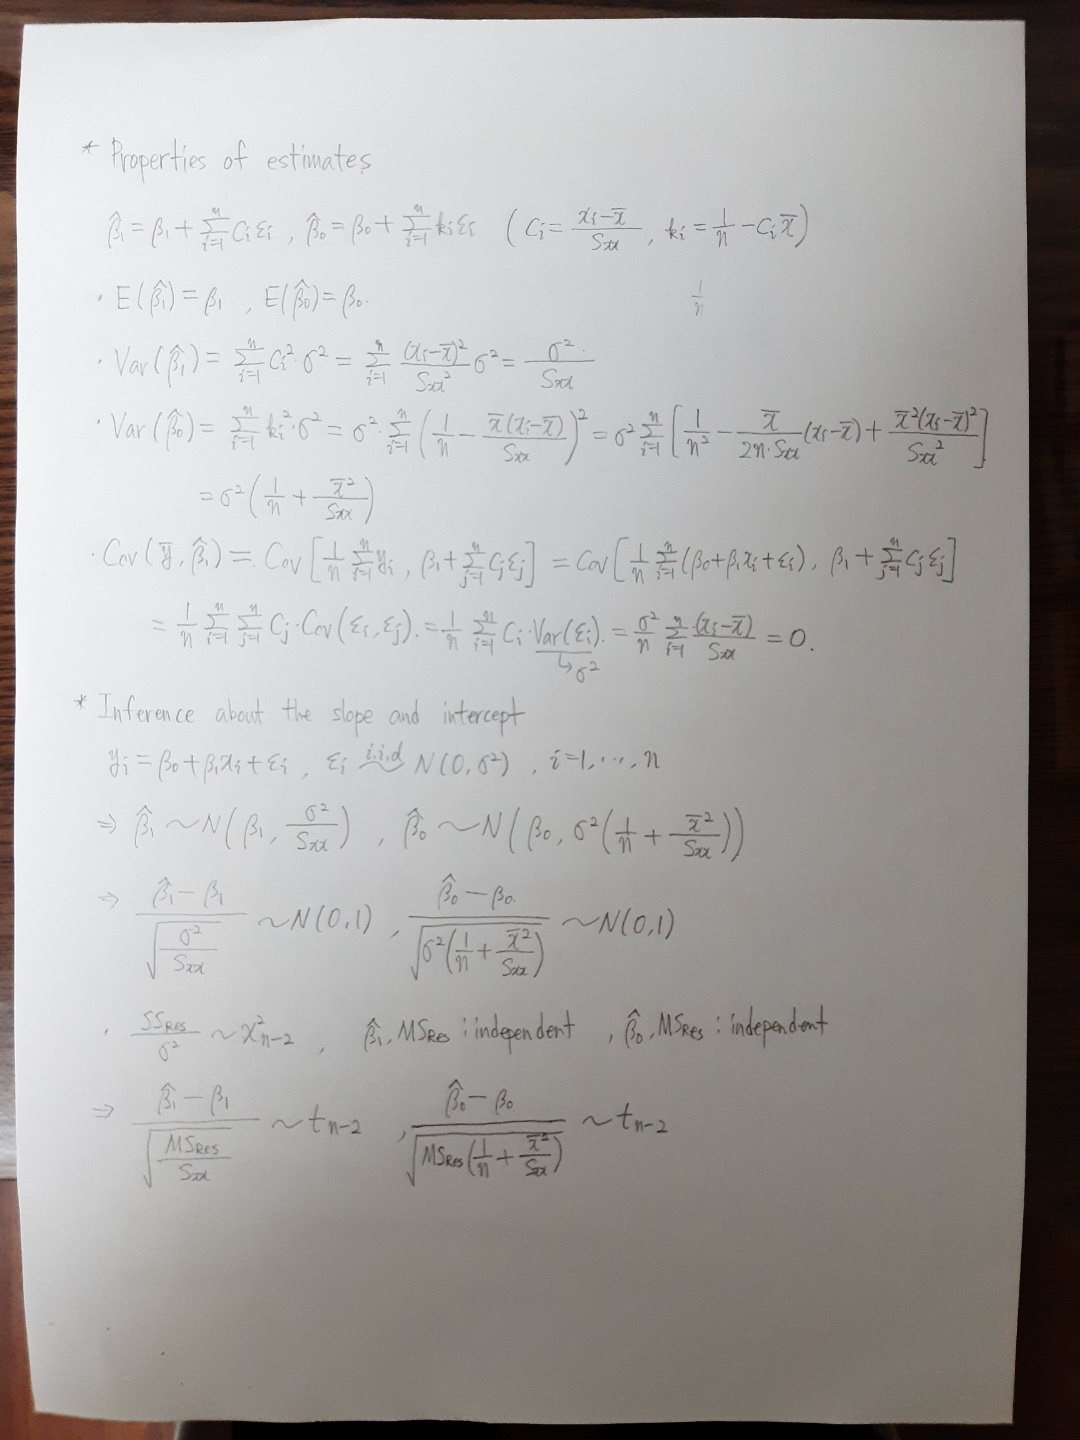 * Properties of estimates
β̂₁ = β₁ + Σⁿᵢ₌₁ Cᵢεᵢ , β̂₀ = β₀ + Σⁿᵢ₌₁ kᵢεᵢ ( Cᵢ = (xᵢ-x̄)/Sxx , kᵢ = 1/n - Cᵢx̄ )
· E(β̂₁) = β₁ , E(β̂₀) = β₀. 1/n
· Var(β̂₁) = Σⁿᵢ₌₁ Cᵢ²·σ² = Σⁿᵢ₌₁ (xᵢ-x̄)²/Sxx² σ² = σ²/Sxx
· Var(β̂₀) = Σⁿᵢ₌₁ kᵢ²·σ² = σ²·Σⁿᵢ₌₁ (1/n - x̄(xᵢ-x̄)/Sxx)² = σ² Σⁿᵢ₌₁ [1/n² - x̄/(2n·Sxx) (xᵢ-x̄) + x̄²(xᵢ-x̄)²/Sxx²]
= σ²(1/n + x̄²/Sxx)
· Cov(ȳ, β̂₁) = Cov[1/n Σⁿᵢ₌₁ yᵢ , β₁ + Σⁿⱼ₌₁ Cⱼεⱼ] = Cov[1/n Σⁿᵢ₌₁ (β₀+β₁xᵢ+εᵢ), β₁ + Σⁿⱼ₌₁ Cⱼεⱼ]
= 1/n Σⁿᵢ₌₁ Σⁿⱼ₌₁ Cⱼ·Cov(εᵢ, εⱼ). = 1/n Σⁿᵢ₌₁ Cᵢ·Var(εᵢ). = σ²/n Σⁿᵢ₌₁ (xᵢ-x̄)/Sxx = 0.
↳ σ²
* Inference about the slope and intercept
yᵢ = β₀+β₁xᵢ+εᵢ , εᵢ i.i.d ~ N(0, σ²) , i=1, ⋯, n
⇒ β̂₁ ~ N(β₁, σ²/Sxx) , β̂₀ ~ N(β₀, σ²(1/n + x̄²/Sxx))
⇒ (β̂₁ - β₁)/√(σ²/Sxx) ~ N(0,1) , (β̂₀ - β₀)/√(σ²(1/n + x̄²/Sxx)) ~ N(0,1)
· SSRes/σ² ~ χ²ₙ₋₂ , β̂₁, MSRes : independent , β̂₀, MSRes : independent
⇒ (β̂₁ - β₁)/√(MSRes/Sxx) ~ tₙ₋₂ , (β̂₀ - β₀)/√(MSRes(1/n + x̄²/Sxx)) ~ tₙ₋₂